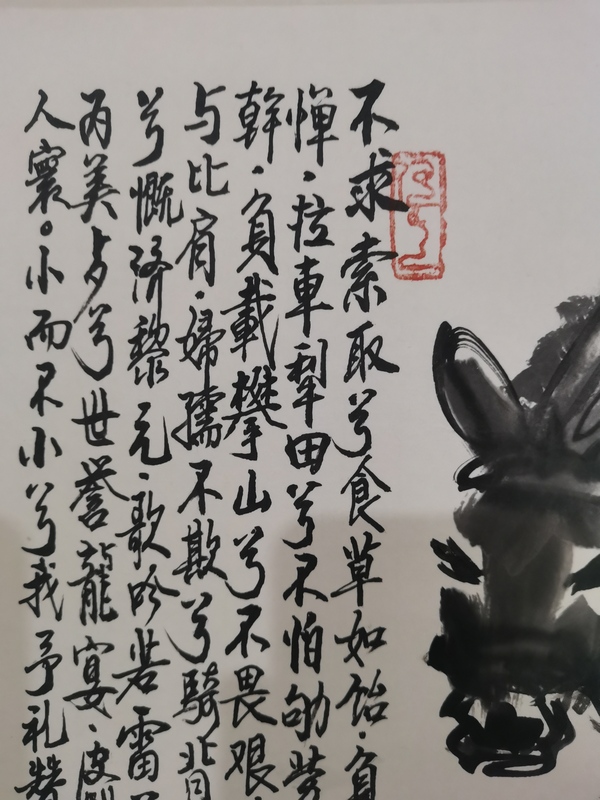 不求索取兮食草如饴·负
惮·拉車犁田兮不怕劬劳
幹·負載攀山兮不畏艰
与比肩·婦孺不欺兮騎背
兮慨济黎元·歌吟若雷
丙美占兮世誉龍宴·波
人寰。小而不小兮我予礼赞